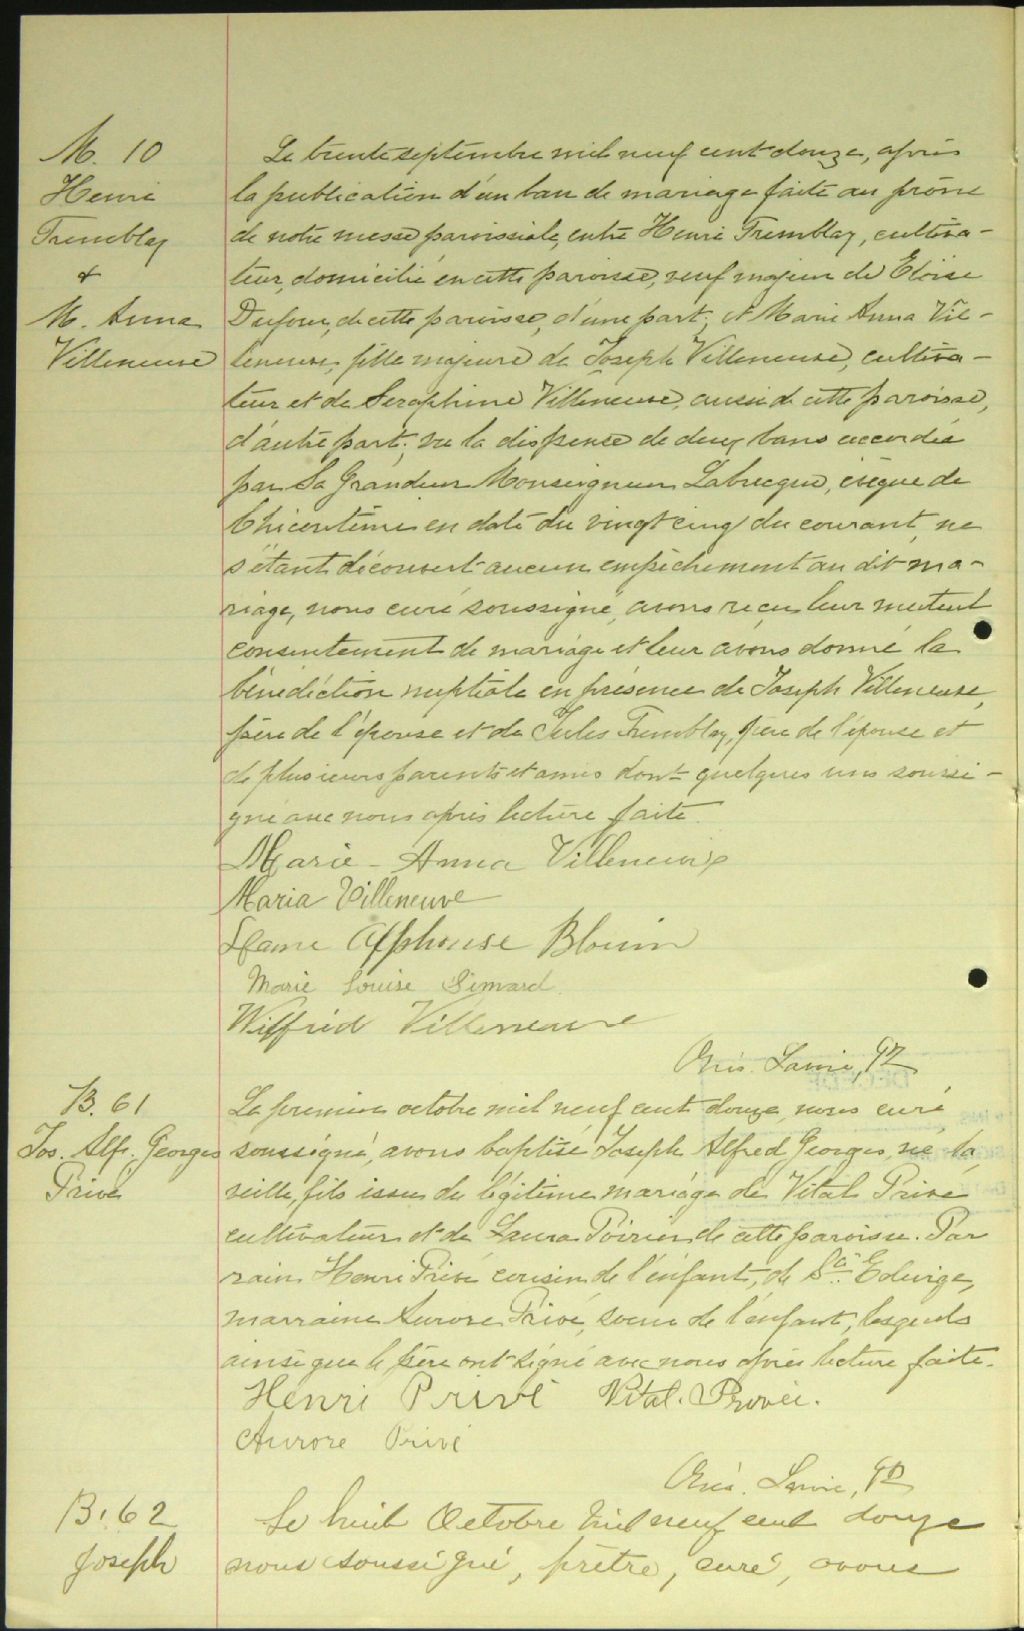 M. 10
Henri
Tremblay
&
M. Anna
Villeneuve
Le trente septembre mil neuf cent douze, après
la publication d'un ban de mariage faite au prône
de notre messe paroissiale, entre Henri Tremblay, cultiva-
teur, domicilié en cette paroisse, veuf majeur de Eloïse
Dufour, de cette paroisse, d'une part; et Marie Anna Vil-
leneuve, fille majeure de Joseph Villeneuve, cultiva-
teur et de Seraphine Villeneuve, aussi de cette paroisse,
d'autre part; vu la dispense de deux bans accordée
par Sa Grandeur Monseigneur Labrecque, évêque de
Chicoutimi en date du vingt cinq du courant, ne
s'étant découvert aucun empêchement au dit ma-
riage, nous curé soussigné, avons reçu leur mutuel
consentement de mariage et leur avons donné la
bénédiction nuptiale en présence de Joseph Villeneuve,
père de l'épouse et de Jules Tremblay, père de l'épouse et
de plusieurs parents et amis dont quelques uns soussi-
gné avec nous après lecture faite.
Marie-Anna Villeneuve
Maria Villeneuve
Dame Alphonse Blouin
Marie Louise Simard.
Wilfrid Villeneuve
B. 61
Jos. Alf. Georges
Privé
Le premier octobre mil neuf cent douze, nous curé
soussigné, avons baptisé Joseph Alfred Georges, né la
veille, fils issu du légitime mariage de Vital Privé
cultivateur et de Laura Poirier de cette paroisse. Par
rain Henri Privé cousin de l'enfant, de Ste Edwige,
marraine Aurore Privé, soeur de l'enfant, lesquels
ainsi que le père ont signé avec nous après lecture faite.
Henri Privé Vital. Privée.
Aurore Privé
B. 62
Joseph
Le huit Octobre mil neuf cent douze
nous soussigné, prêtre, curé, avons